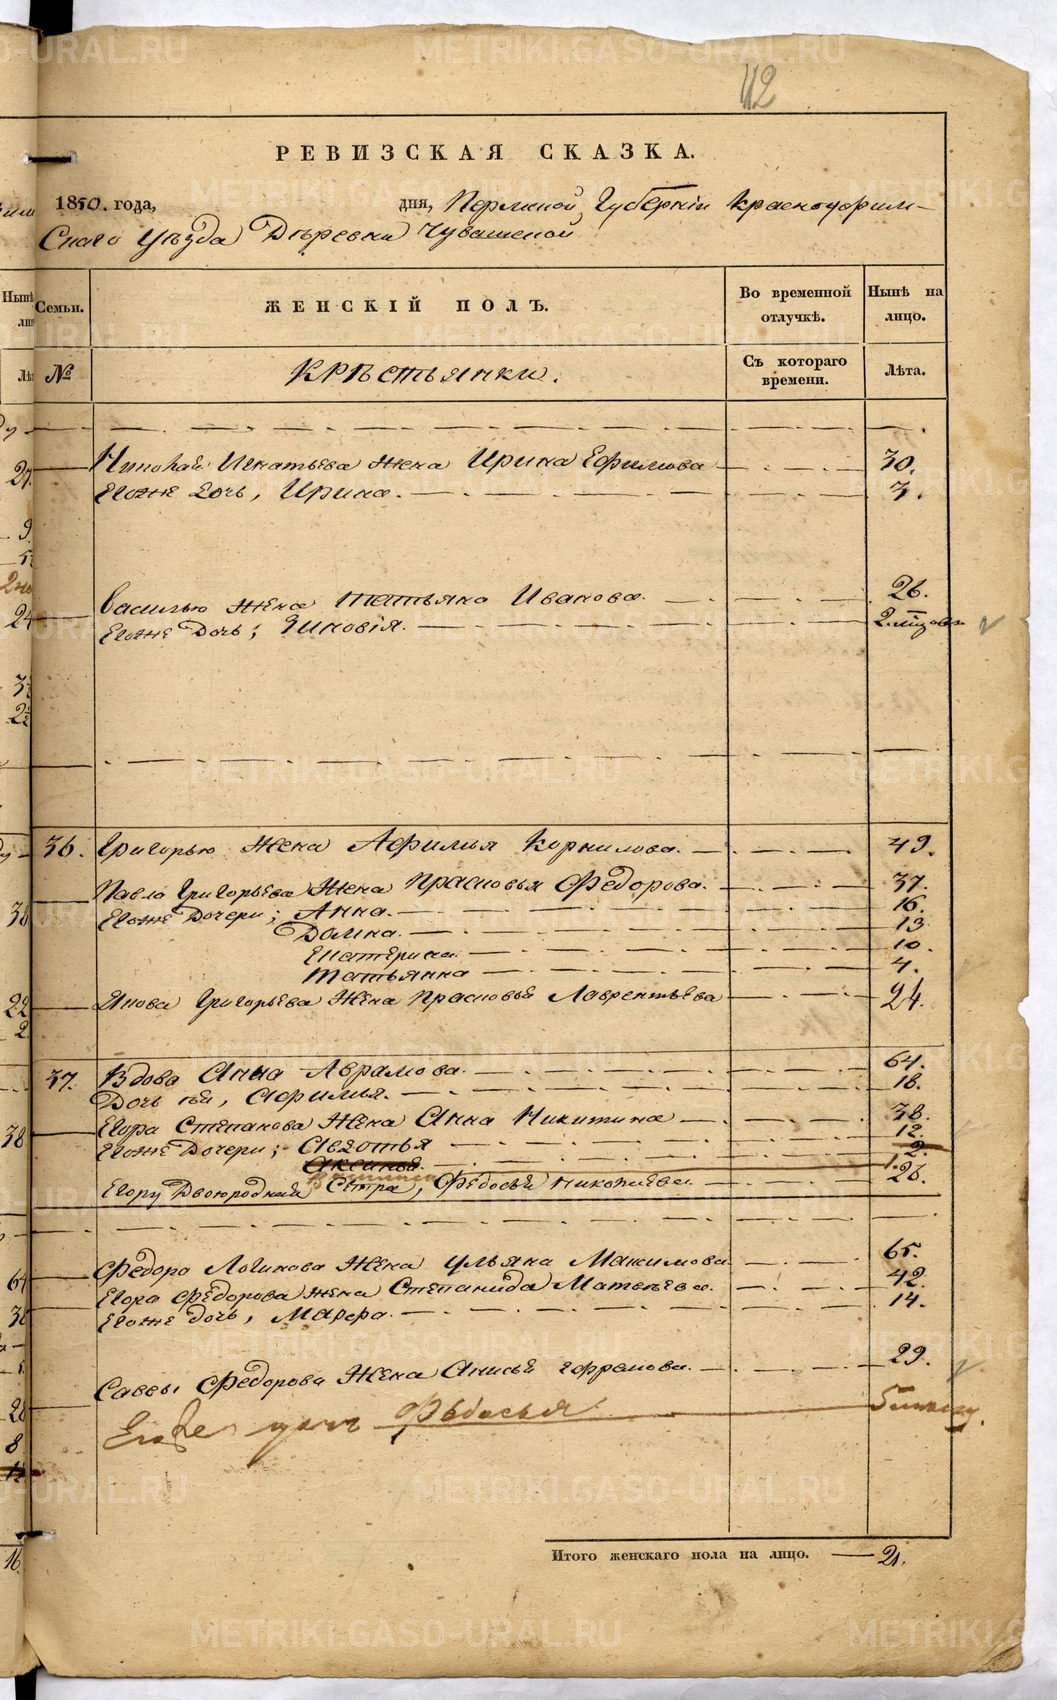 42
РЕВИЗСКАЯ СКАЗКА.
1850. года, дня, Пермской Губерніи Красноуфим-
скаго Уѣзда Деревни Чувашской
Семьи. ЖЕНСКІЙ ПОЛЪ. Во временной отлучкѣ. Нынѣ на лицо.
№ Крестьянки. Съ котораго времени. Лѣта.
Николая Игнатьева жена Ирина Ефимова 30.
Егоже дочь, Ирина. 3.
Василью жена Татьяна Иванова. 26.
Егоже дочь; Зиновія. 2.
36. Григорью жена Афимья Корнилова. 49.
Павла Григорьева жена Прасковья Федорова. 37.
Егоже Дочери; Анна. 16.
Домна. 13
Екатерина. 10.
Татьянна 4.
Якова Григорьева жена Прасковья Лаврентьева 24.
37. Вдова Анна Аврамова. 64.
Дочь ея, Афимья. 18.
Егора Степанова жена Анна Никитина 38.
Егоже Дочери; Авдотья 12.
Аксинья. 2.
Егору Двоюродная Сестра, Федосья 26.
Федора Логинова жена Ульяна Максимова 65.
Егора Федорова жена Степанида Матвѣева. 42.
Егоже дочь, Марфа. 14.
Саввы Федорова жена Анисья Ефремова. 29.
Егоже дочь Федосья
Итого женскаго пола на лицо. 21.
METRIKI.GASO-URAL.RU